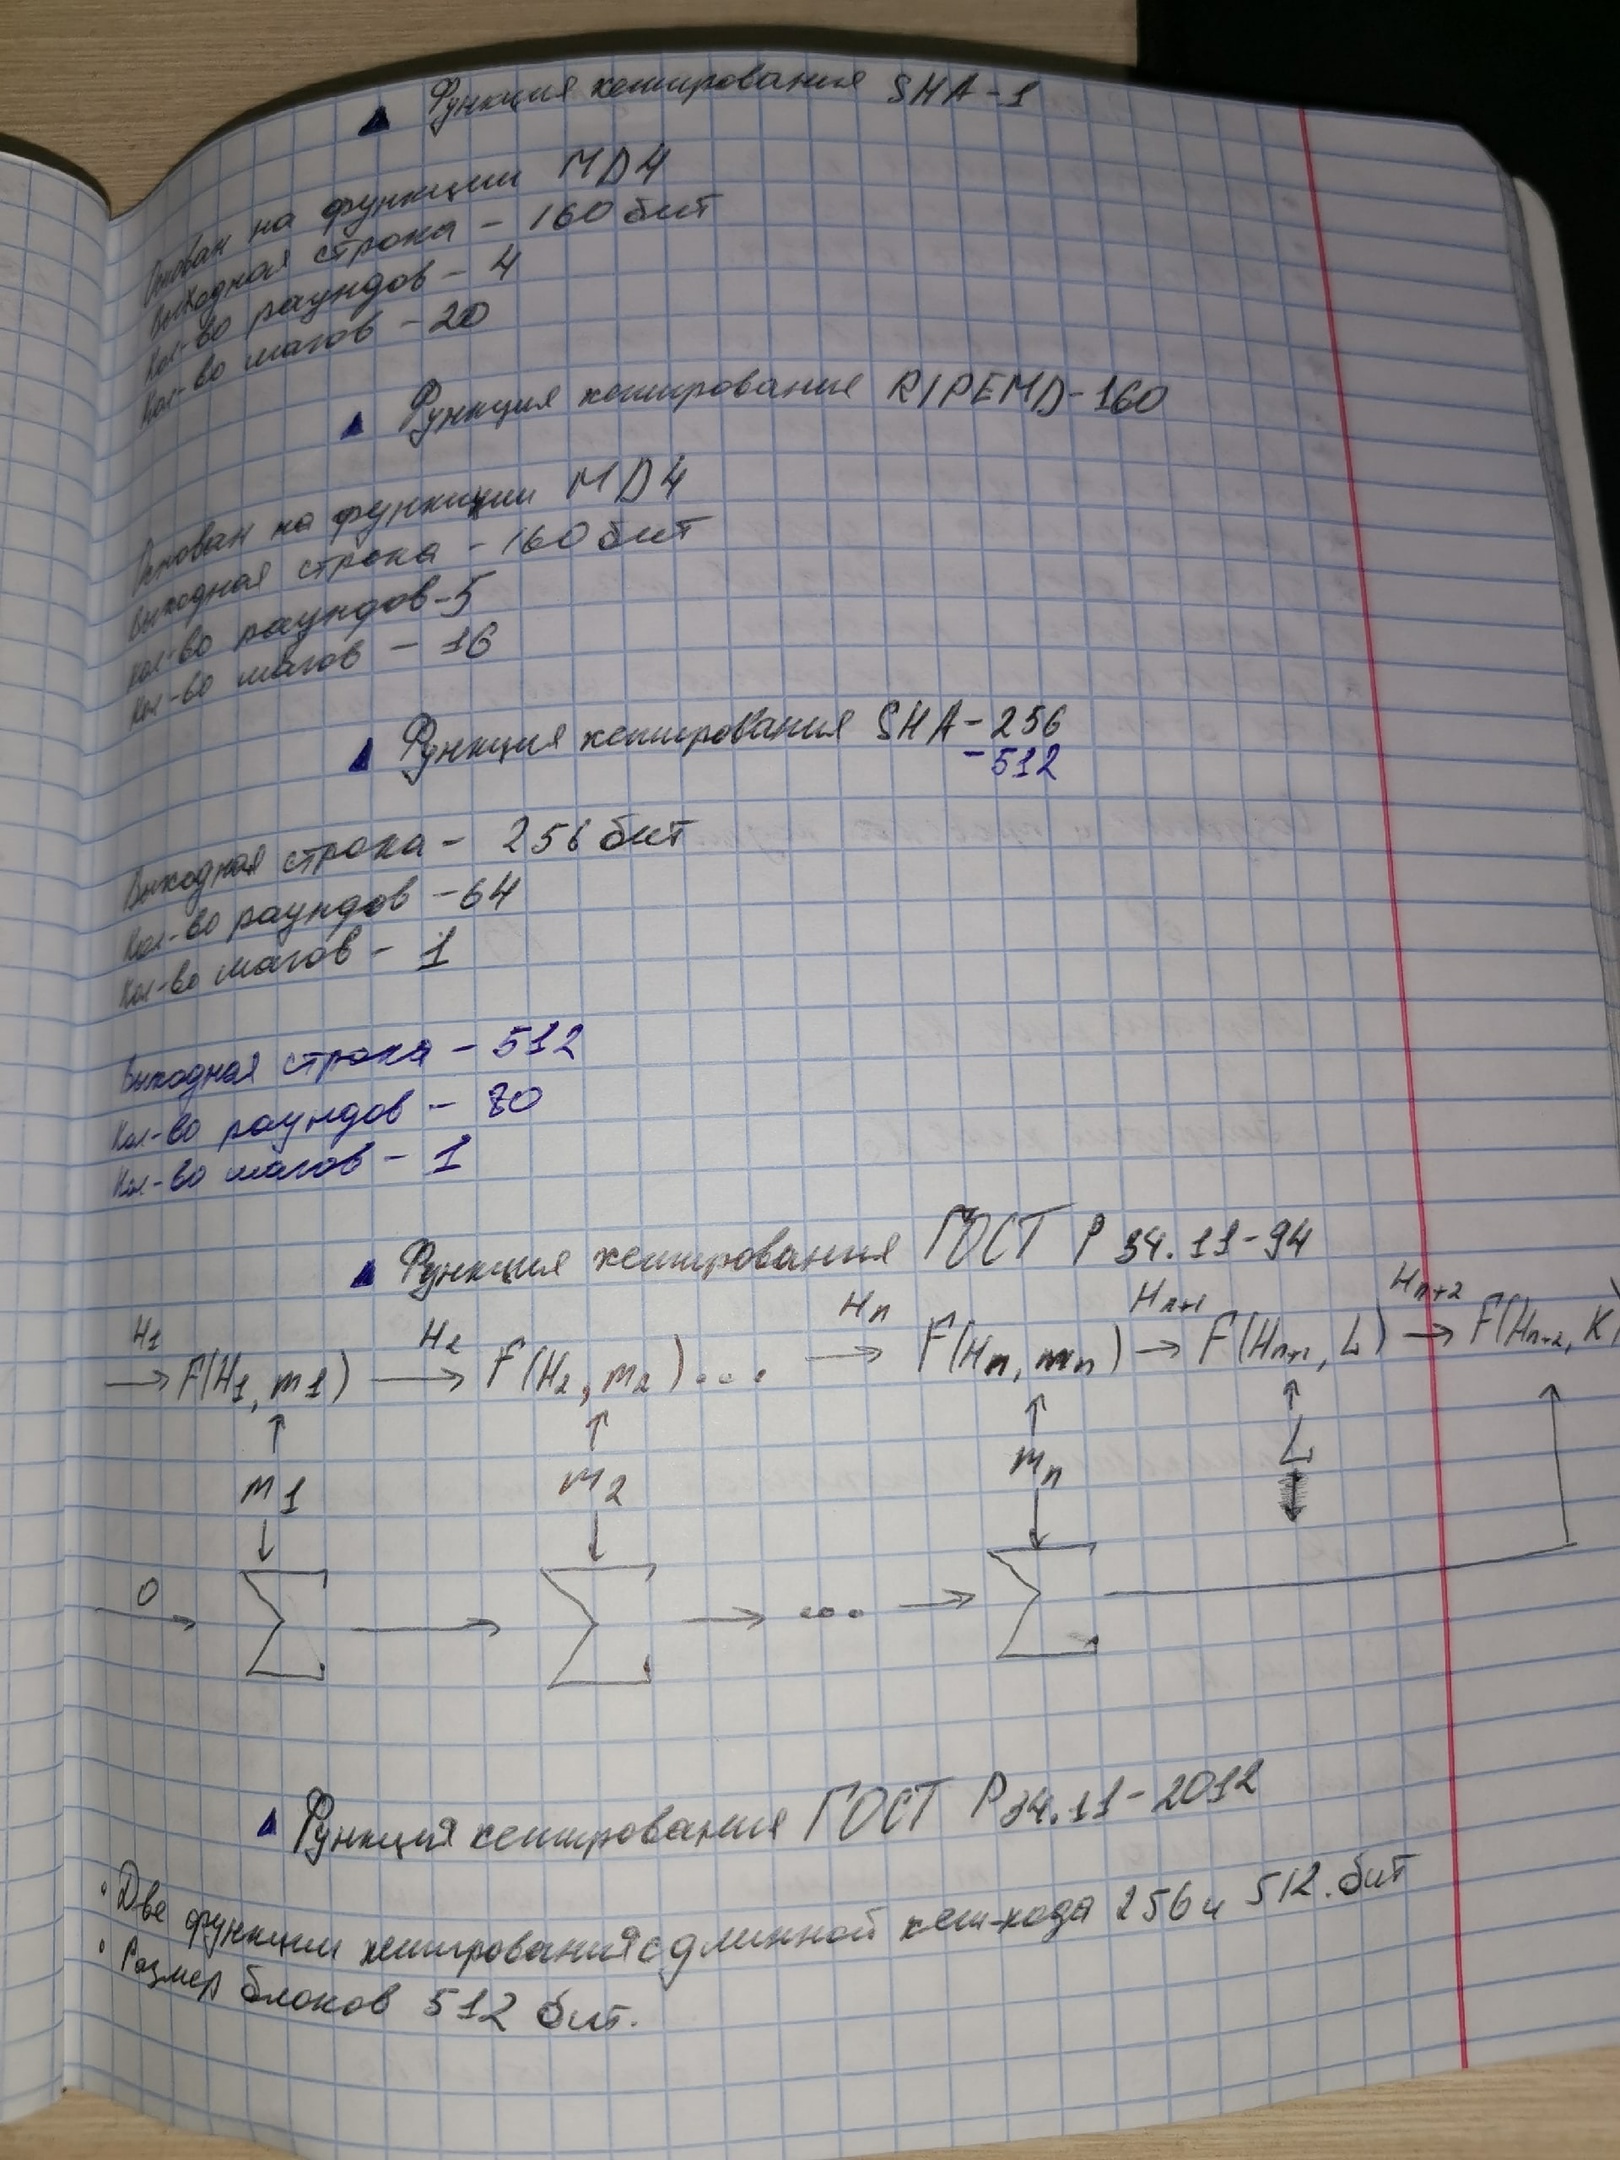 Функция хеширования SHA-1
Основан на функции MD4
Выходная строка - 160 бит
Кол-во раундов - 4
Кол-во шагов - 20
Функция хеширования RIPEMD-160
Основан на функции MD4
Выходная строка - 160 бит
Кол-во раундов - 5
Кол-во шагов - 16
Функция хеширования SHA-256
-512
Выходная строка - 256 бит
Кол-во раундов - 64
Кол-во шагов - 1
Выходная строка - 512
Кол-во раундов - 80
Кол-во шагов - 1
Функция хеширования ГОСТ Р 34.11-94
H1 H2 Hn Hn+1 Hn+2
→ F(H1, m1) → F(H2, m2) ... → F(Hn, mn) → F(Hn+1, L) → F(Hn+2, K)
m1 m2 mn L
0 → Σ → Σ → ... → Σ
Функция хеширования ГОСТ Р 34.11-2012
• Две функции хеширования с длинной хеш-кода 256 и 512. бит
• Размер блоков 512 бит.